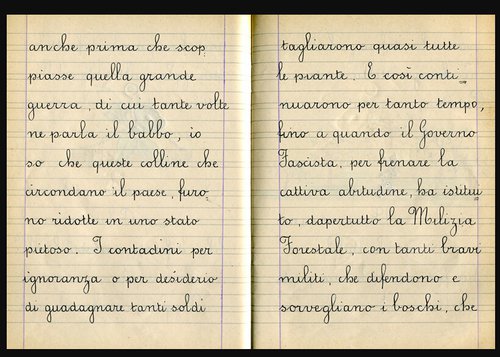 anche prima che scop
piasse quella grande
guerra, di cui tante volte
ne parla il babbo, io
so che queste colline che
circondano il paese, furo-
no ridotte in uno stato
pietoso. I contadini per
ignoranza o per desiderio
di guadagnare tanti soldi
tagliarono quasi tutte
le piante. E così conti-
nuarono per tanto tempo,
fino a quando il Governo
Fascista, per frenare la
cattiva abitudine, ha istitui
to, dapertutto la Milizia
Forestale, con tanti bravi
militi, che difendono e
sorvegliano i boschi, che